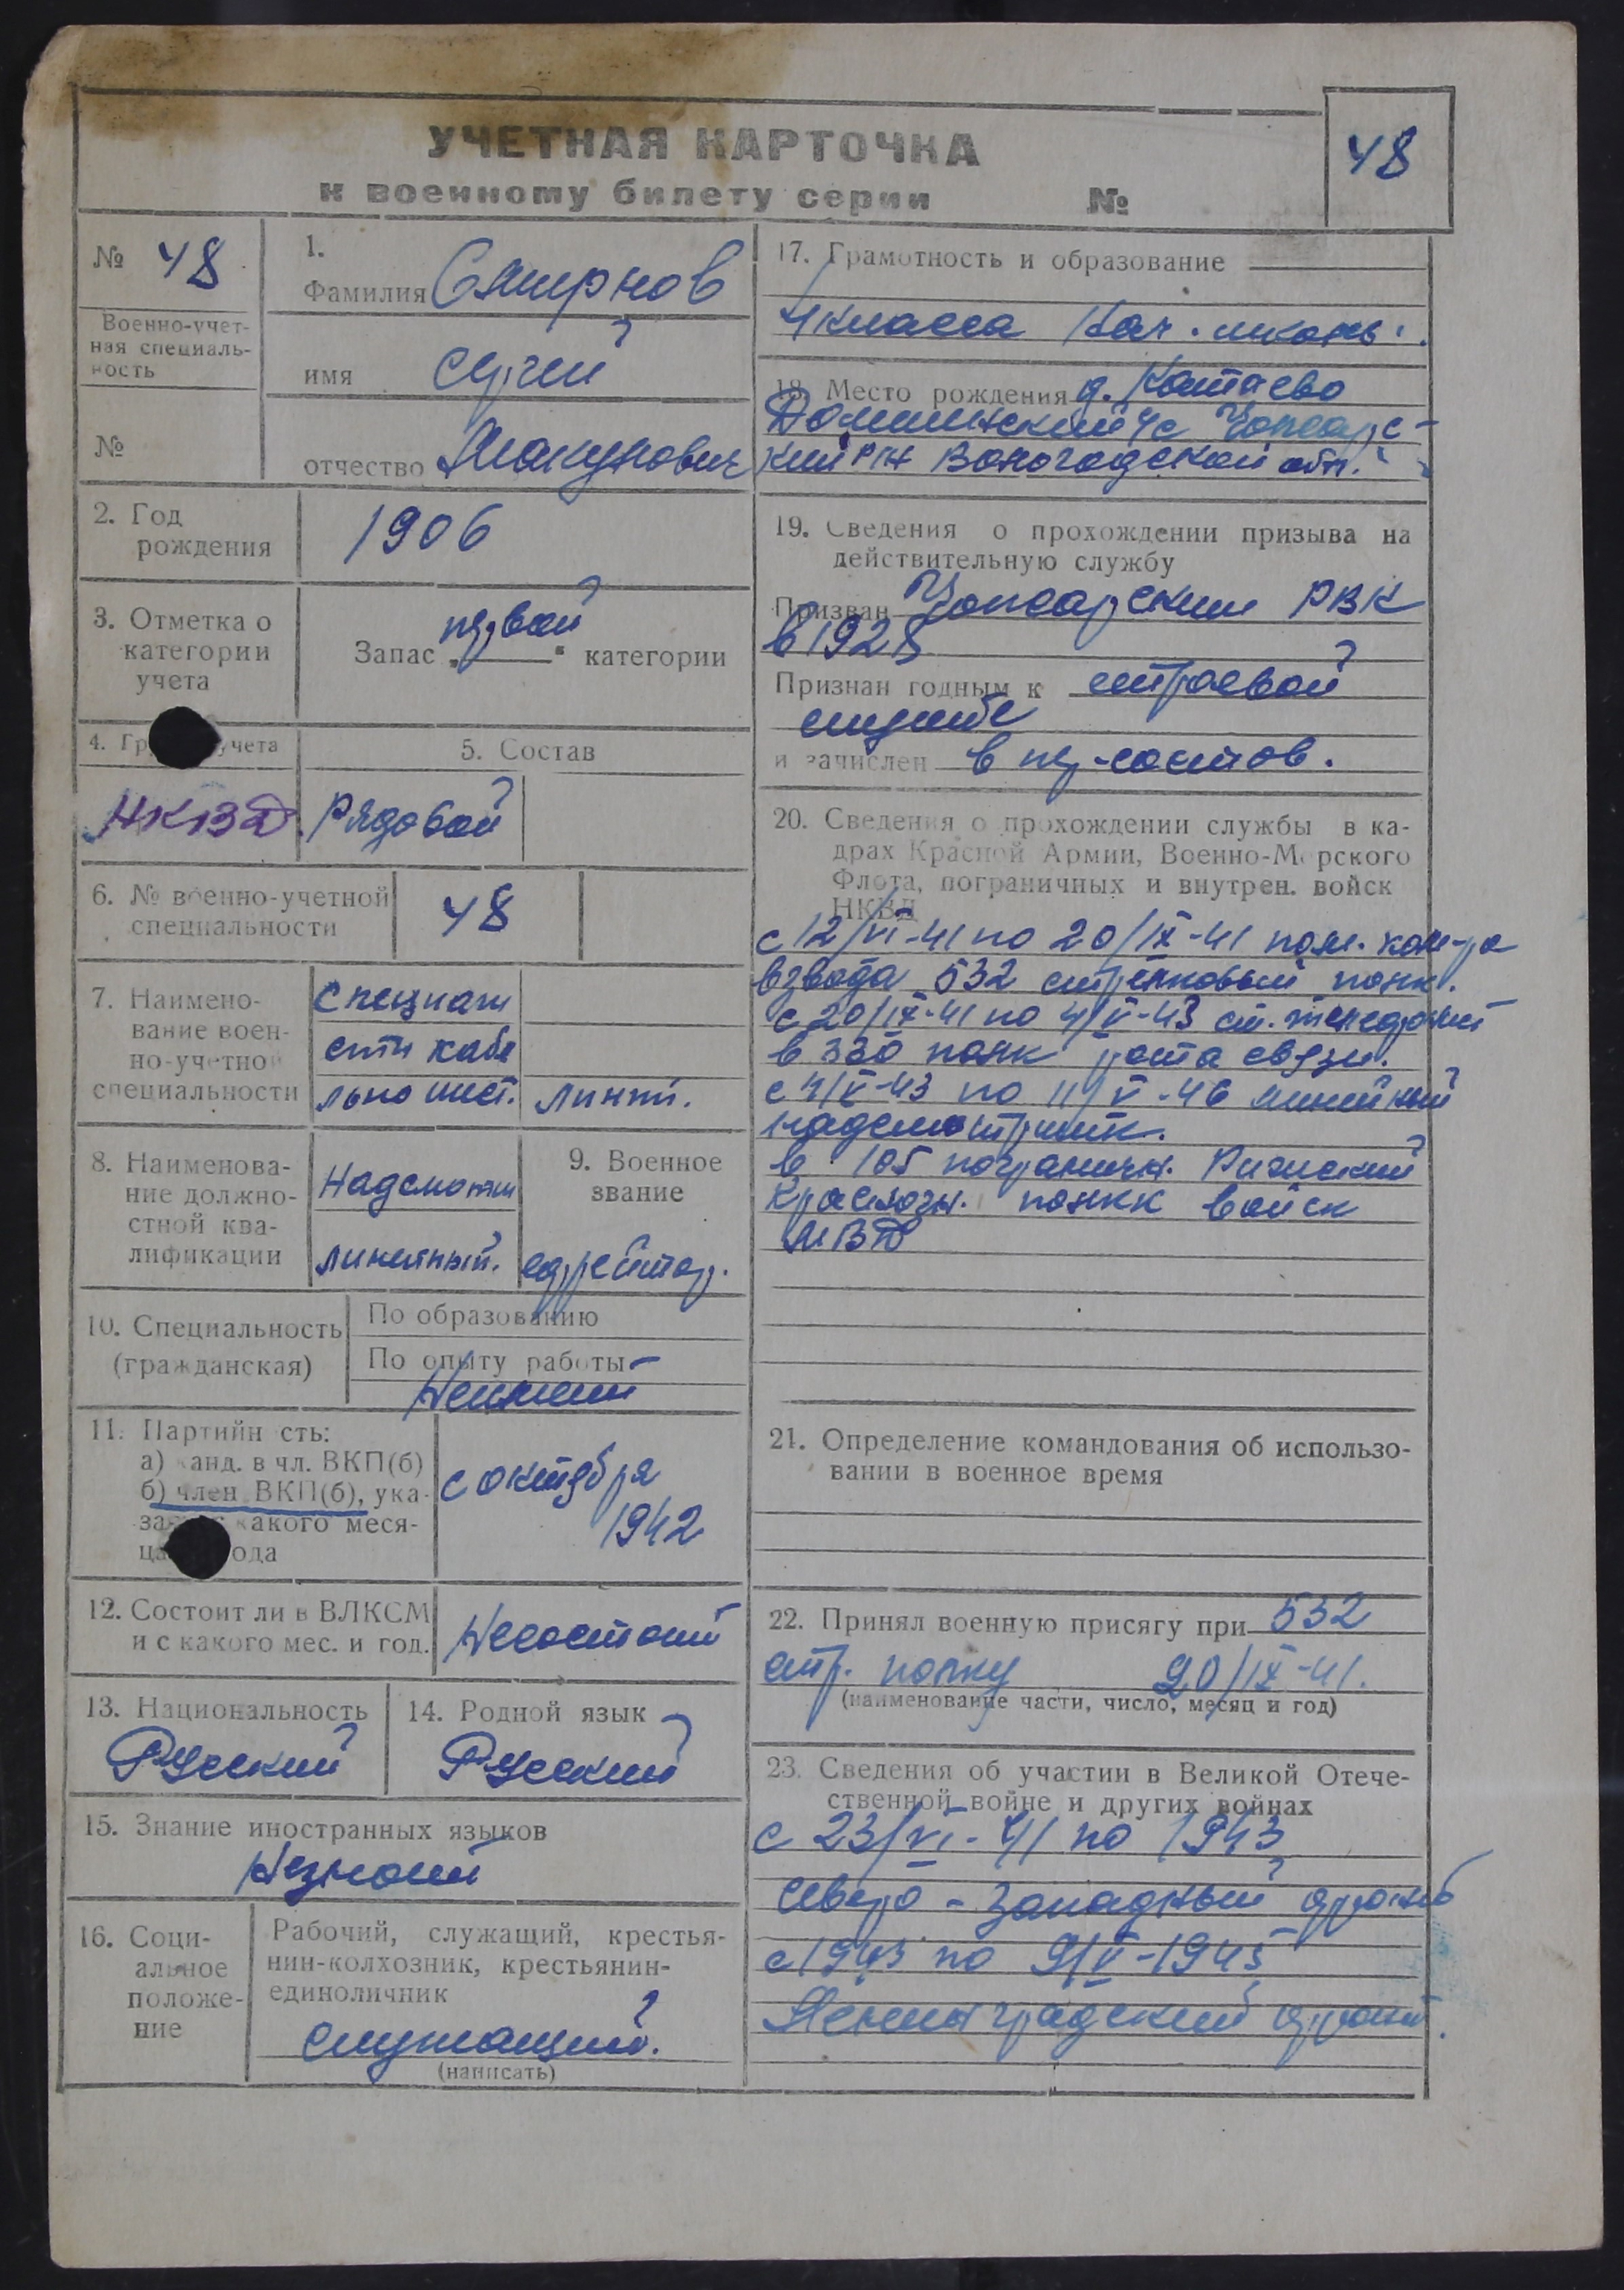 УЧЕТНАЯ КАРТОЧКА
к военному билету серии №
48
№ 48
Военно-учет-
ная специаль-
ность
№
1.
Фамилия Смирнов
имя Сергей
отчество
2. Год
рождения
1906
3. Отметка о
категории
учета
Запас „первой“ категории
4. Гр учета
НКВД
5. Состав
Рядовой
6. № военно-учетной
специальности
48
7. Наимено-
вание воен-
но-учетной
специальности
Специал
сти кабе
льно шест. линии.
8. Наименова-
ние должно-
стной ква-
лификации
Надсмотщ
линейный.
9. Военное
звание
ефрейтор.
10. Специальность
(гражданская)
По образованию
По опыту работы
Неимеет
11. Партийн сть:
а) канд. в чл. ВКП(б)
б) член ВКП(б), ука-
за какого меся-
ца ода
с октября
1942
12. Состоит ли в ВЛКСМ
и с какого мес. и год.
Несостоит
13. Национальность
Русский
14. Родной язык
Русский
15. Знание иностранных языков
Незнает
16. Соци-
альное
положе-
ние
Рабочий, служащий, крестья-
нин-колхозник, крестьянин-
единоличник
служащий.
(написать)
17. Грамотность и образование
4 класса Нач. школы.
18. Место рождения д.
с/с
кий р-н Вологодской обл.
19. Сведения о прохождении призыва на
действительную службу
Призван РВК
в 1928
Признан годным к строевой
службе
и зачислен в пер-состов.
20. Сведения о прохождении службы в ка-
драх Красной Армии, Военно-Морского
Флота, пограничных и внутрен. войск
НКВД
с 12/VI-41 по 20/IX-41 пом. ком-ра
взвода 532 стрелковый полк.
с 20/IX-41 по 4/V-43 ст. телефонист
в 330 полк рота связи.
с 4/V-43 по 11/V-46 линейный
надсмотрщик.
в 105 погранич. Рижский
Краснозн. полкк войск
МВД
21. Определение командования об использо-
вании в военное время
22. Принял военную присягу при 532
стр. полку 20/IX-41.
(наименование части, число, месяц и год)
23. Сведения об участии в Великой Отече-
ственной войне и других войнах
с 23/VI-41 по 1943
Северо-Западный фронт
с 1943 по 9/V-1945
Ленинградский фронт.